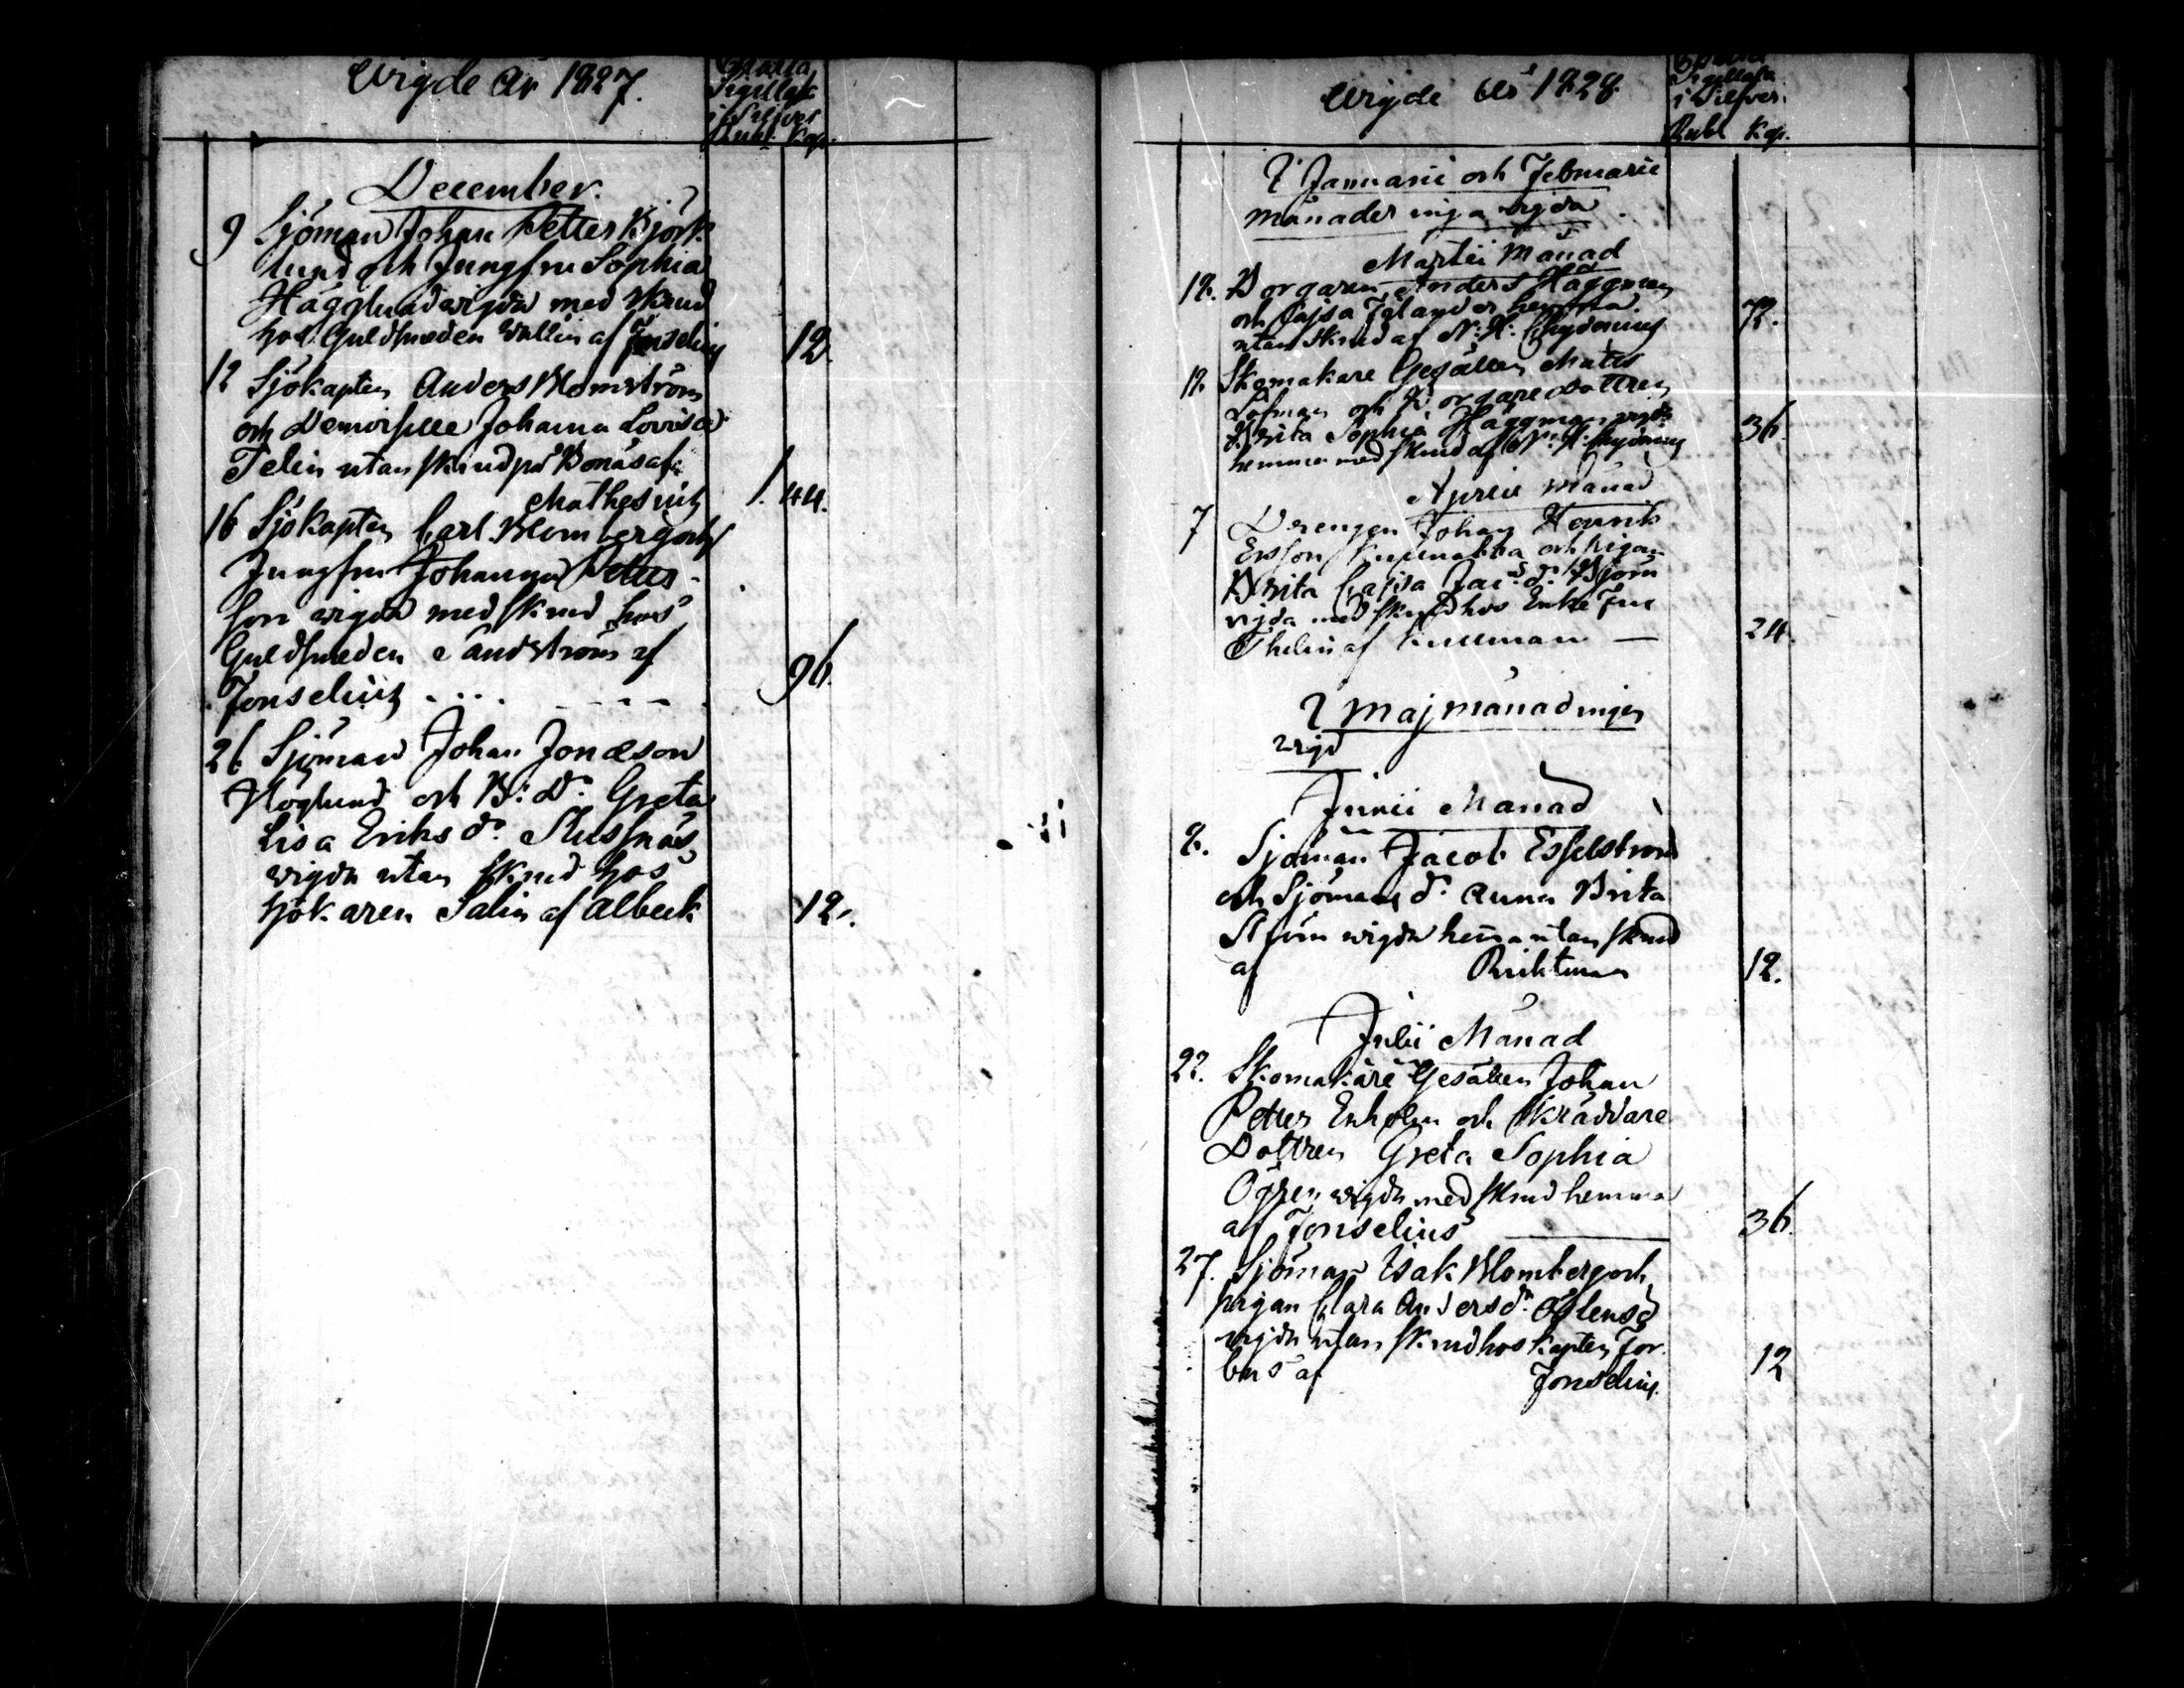 Wigde År 1827.
Sigillat
i Silfver
Rubl. Kop.
December.
9 Sjöman Johan Petter Björk
lund och Jungfru Sophia
Hägglund wigda med skrud
hos Guldsmeden Wallin af Jonselius 12.
12 Sjökapten Anders Blomström
och Demoiselle Johanna Lovisa
Telin utan skrud på Bonäs af
Mathesius 1. 44.
16 Sjökapten Carl Blomberg och
Jungfru Johanna Peters-
son wigda med skrud hos
Guldsmeden Sandström af
Jonselius 96.
26 Sjöman Johan Jonæson
Höglund och B: D:r Greta
Lisa Eriks d:r Slussnäs
wigda utan skrud hos
hökaren Salin af Albeck 12.
Wigde År 1828.
Sigillata
i Silfver.
Rubl Kop.
I Januarii och Februarii
månader inga wigda
Martii Månad
12. Borgaren Anders Häggman
och Cajsa hemma
utan skrud af N: H: Chydenius 72.
12. Skomakare Gesällen Matts
Löfman och Borgare Dottren
Brita Sophia Häggman wigda
hemma med skrud af N: H: Chydenius 36.
Aprill Månad
7 Drengen Johan Henrik
Ersson och pigan
Brita Cajsa Jac:s d:r Björn
vigda med skrud hos Enke Fru
Thelin af 24.
I Maj månad ingen
wigd
Junii Månad
8. Sjöman Jacob Esselström
och Sjömans d:r Anna Brita
Ström wigda hema utan skrud
af 12.
Julii Månad
22. Skomakare Gesällen Johan
Petter Enholm och Skräddare
Dottren Greta Sophia
Ögren wigda med skrud hemma
af Jonselius 36.
27. Sjöman Isak Blomberg och
pigan Clara Anders d:r Östensö
wigda utan skrud hos Kapten For
bus af Jonselius. 12